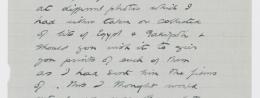 at different photos which I
had either taken or collected
of life of Egypt & Palestine &
should you wish it to give
you prints of such of them
as I had with him the films
of. This I thought would